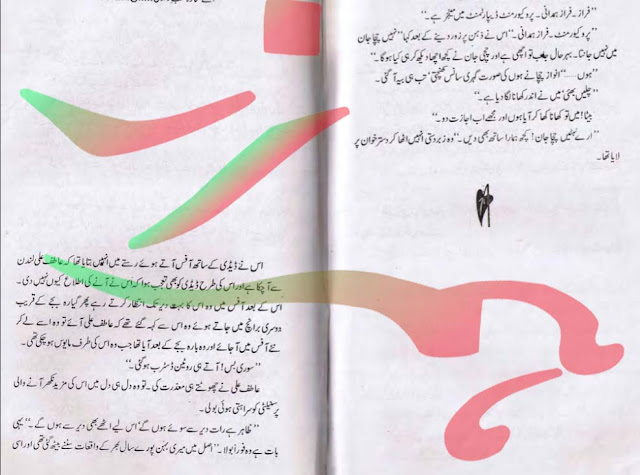 ”فراز۔ فراز ہمدانی۔ پروکیورمنٹ ڈیپارٹمنٹ میں منیجر ہے۔“
”پروکیورمنٹ۔ فراز ہمدانی۔“ اس نے ذہن پر زور دینے کے بعد کہا ”نہیں چچا جان
میں نہیں جانتا۔ بہر حال جاب تو اچھی ہے اور چچی جان نے کچھ اچھا دیکھ کر ہی کیا ہوگا۔“
”ہوں......“ انوار چچا نے ہوں کی صورت گہری سانس کھینچی تب ہی بیہ آ گئی۔
”چلیں بھئی‘ میں نے اندر کھانا لگا دیا ہے۔“
”بیٹا! میں تو کھانا کھا کر آیا ہوں اور مجھے اب اجازت دو۔“
”ارے نہیں چچا جان! کچھ ہمارا ساتھ بھی دیں۔“ وہ زبردستی انہیں اٹھا کر دستر خوان پر
لایا تھا۔
اس نے ڈیڈی کے ساتھ آفس آتے ہوئے رستے میں انہیں بتایا تھا کہ عاطف علی لندن
سے آ چکا ہے اور اس کی طرح ڈیڈی کو بھی تعجب ہوا کہ اس نے آنے کی اطلاع کیوں نہیں دی۔
اس کے بعد آفس میں وہ اس کا بہت دیر تک انتظار کرتے رہے پھر گیارہ بجے کے قریب
دوسری برانچ میں جاتے ہوئے وہ اس سے کہہ گئے تھے کہ عاطف علی آئے تو وہ اسے لے کر
نئے آفس میں آ جائے اور وہ بارہ بجے کے بعد آیا تھا جب وہ اس کی طرف مایوس ہو چکی تھی۔
”سوری بس! آتے ہی روٹین ڈسٹرب ہو گئی۔“
عاطف علی نے چھوٹتے ہی معذرت کی۔ تو وہ دل ہی دل میں اس کی مزید نکھر آنے والی
پرسنیلٹی کو سراہتی ہوئی بولی۔
”ظاہر ہے رات دیر سے سوئے ہوں گے‘ اس لیے اٹھے بھی دیر سے ہوں گے۔“ یہی
بات ہے وہ فوراً بولا۔ ”اصل میں میری بہن پورے سال بھر کے واقعات سننے بیٹھ گئی تھی اور اسی